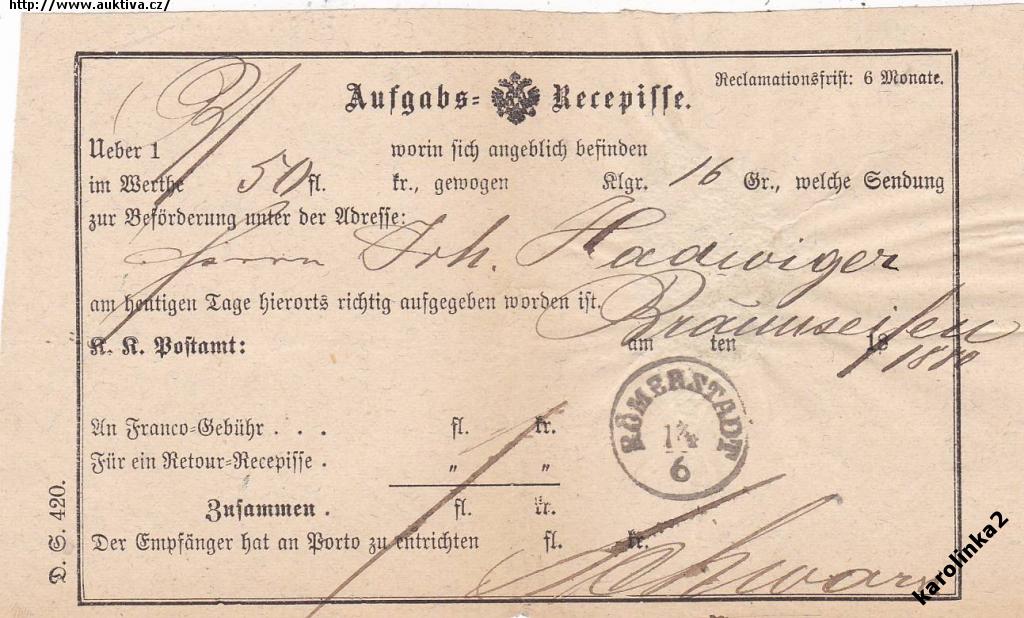 http://www.auktiva.cz/
Aufgabs- Recepisse.
Reclamationsfrist: 6 Monate.
Ueber 1 worin sich angeblich befinden
im Werthe 50 fl. kr., gewogen Klgr. 16 Gr., welche Sendung
zur Beförderung unter der Adresse:
Herrn Joh. Hadwiger
am heutigen Tage hierorts richtig aufgegeben worden ist.
Braunseifen
K. K. Postamt: am ten 18
RÖMERSTADT
6
An Franco-Gebühr . . . fl. kr.
Für ein Retour-Recepisse . „ „
Zusammen . fl. kr.
Der Empfänger hat an Porto zu entrichten fl. kr.
D. S. 420.
karolinka2